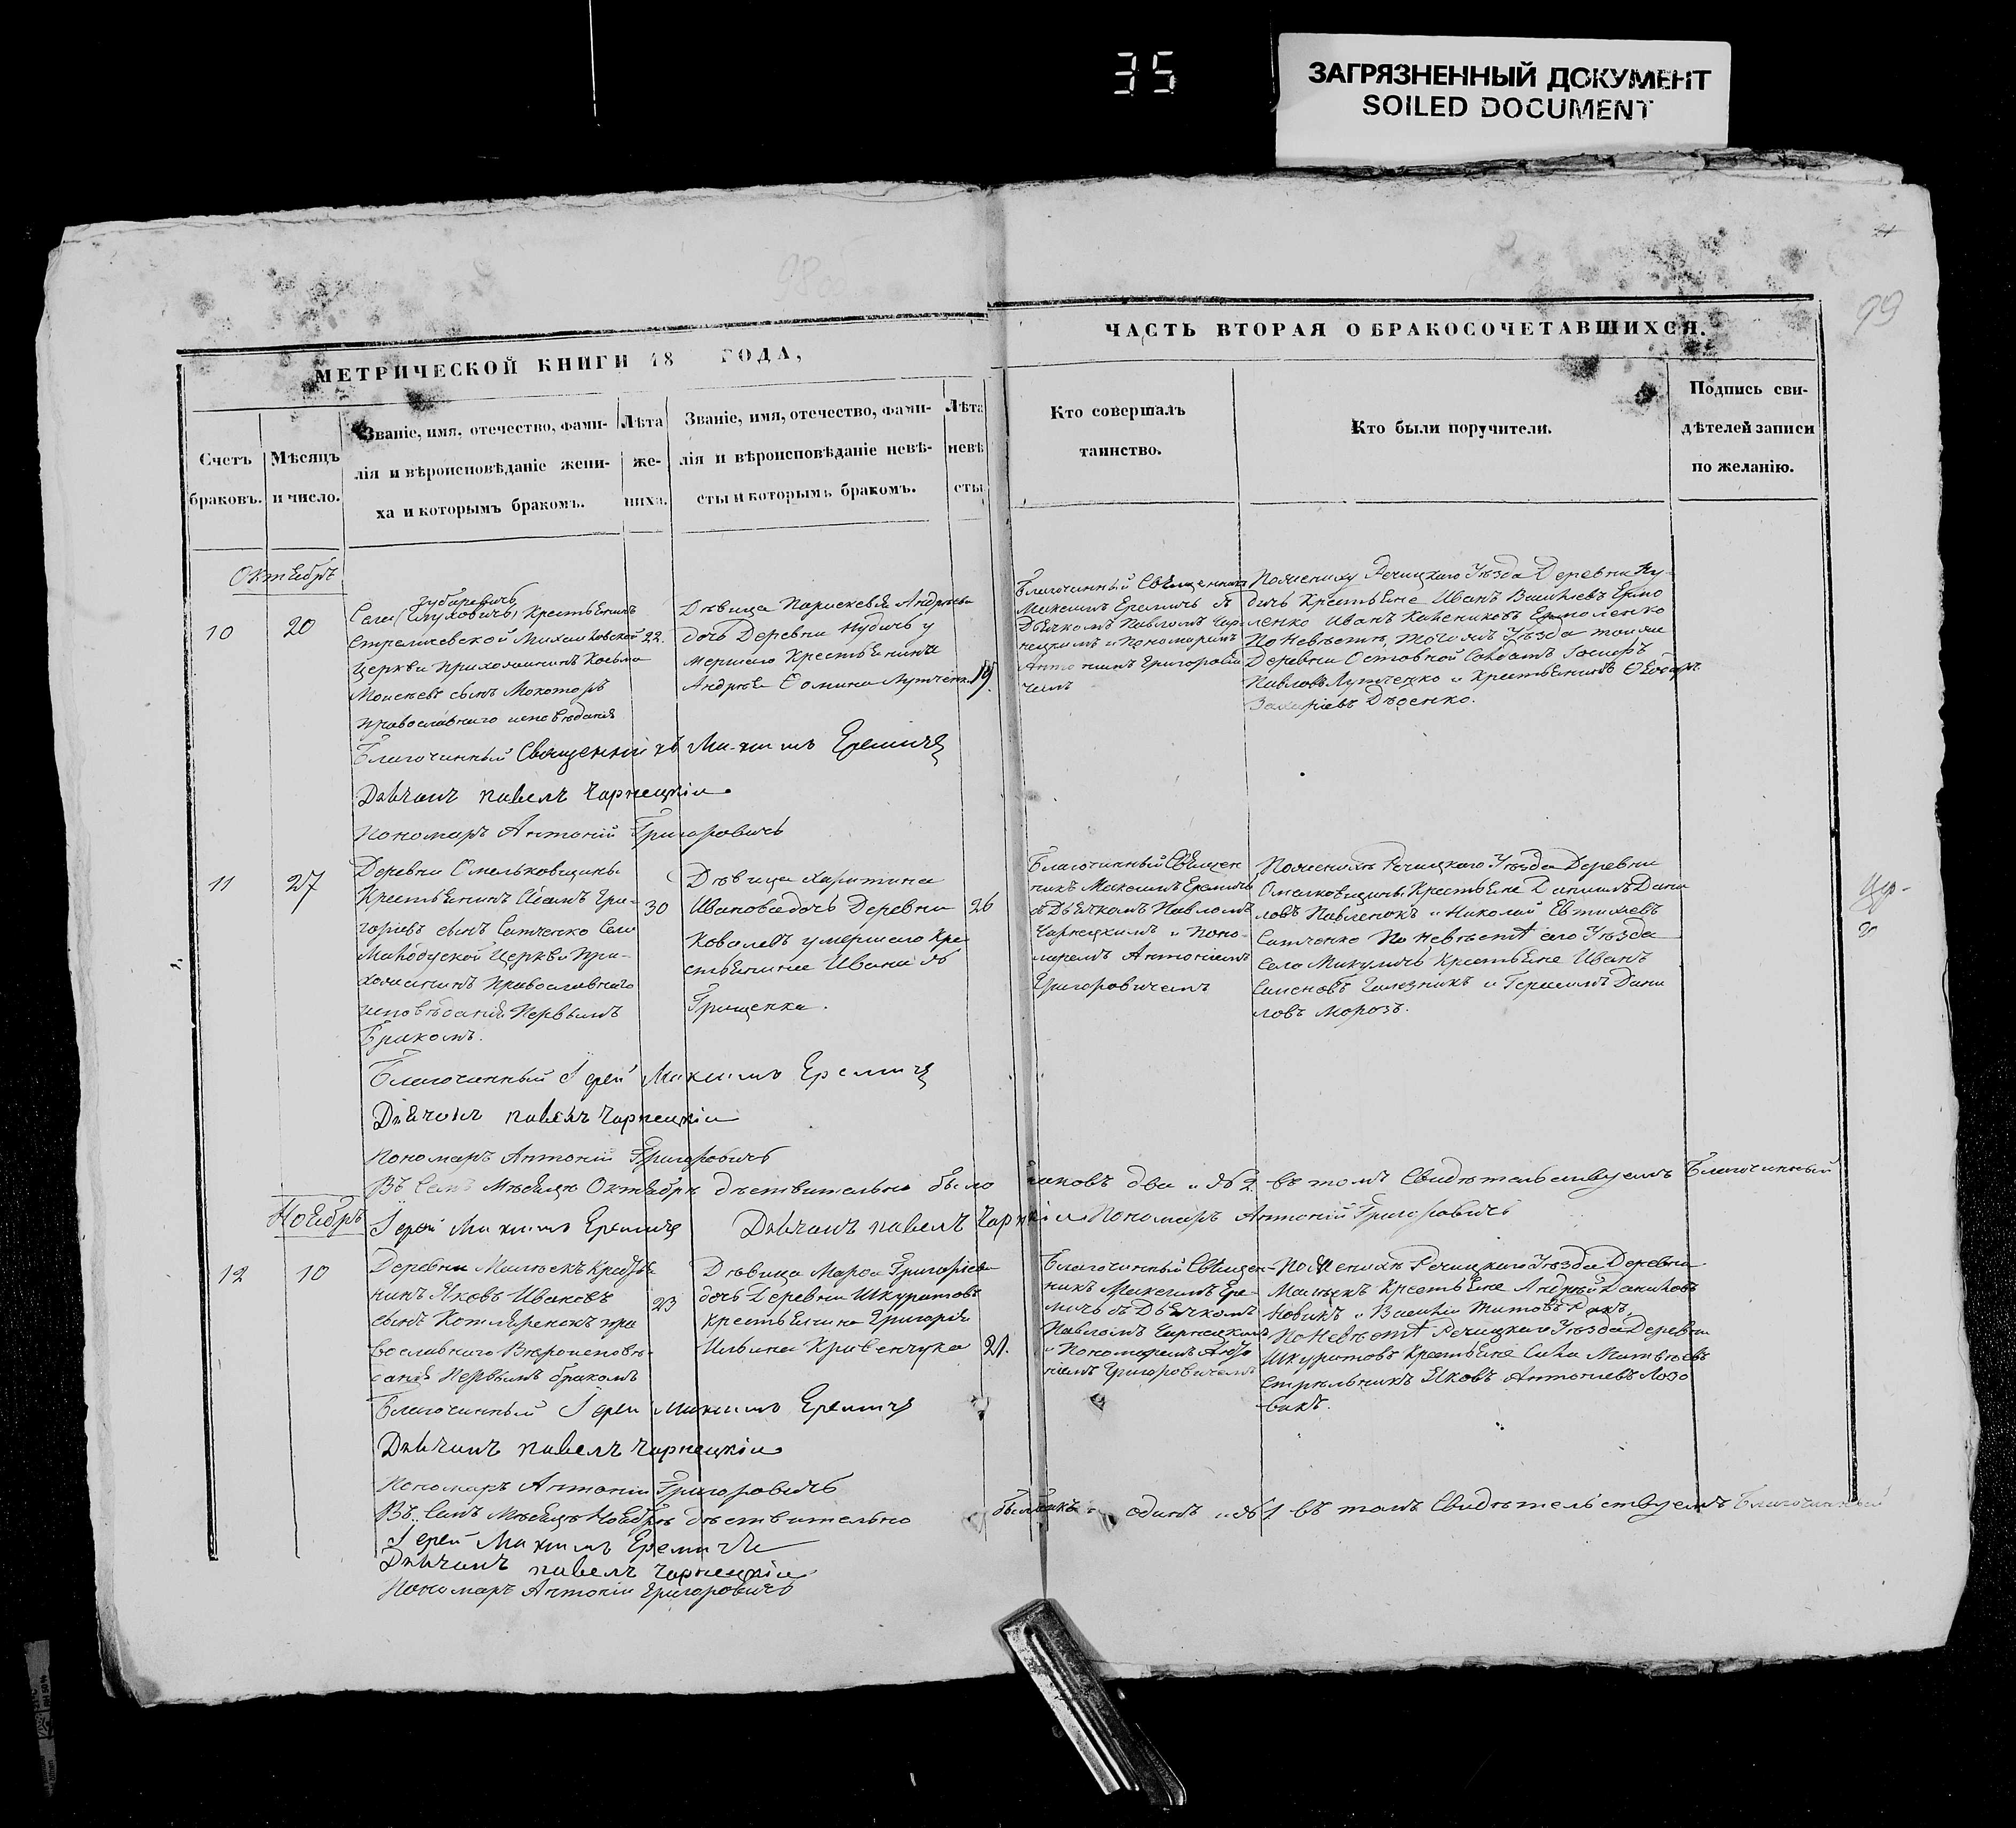 35
ЗАГРЯЗНЕННЫЙ ДОКУМЕНТ
SOILED DOCUMENT
98 об
99
МЕТРИЧЕСКОЙ КНИГИ 18 ГОДА,
ЧАСТЬ ВТОРАЯ О БРАКОСОЧЕТАВШИХСЯ.
Счетъ
браковъ.
Мѣсяцъ
и число.
Званіе, имя, отечество, фами-
лія и вѣроисповѣданіе жени-
ха и которымъ бракомъ.
Лѣта
же-
ниха.
Званіе, имя, отечество, фами-
лія и вѣроисповѣданіе невѣ-
сты и которымъ бракомъ.
Лѣта
невѣ
сты
Кто совершалъ
таинство.
Кто были поручители.
Подпись сви-
дѣтелей записи
по желанію.
Октябрь
10
20
Губаревичь
Села Крестьянинъ
Стреличевской Михайловской
Церкви Прихожанинъ Косьма
Моисеевъ сынъ
православнаго исповѣданія
22.
Дѣвица Параскевія Андреева
дочь Деревни Нудичь у
мершаго Крестьянина
Андрея Ѳомина
19.
Благочинный Священникъ
Максимъ Еремичь съ
Дьячкомъ Павломъ Чар
нецкимъ и Пономаремъ
Антоніемъ Григорови
чемъ
По жениху Речицкаго Уѣзда Деревни Ну-
дичь Крестьяне Иванъ Васильевъ Ермо
ленко Иванъ Ермоленко
По Невѣстѣ, того жъ Уѣзда той же
Деревни
Павловъ Лутченко и Крестьянинъ
Захаріевъ
Благочинный Священникъ Максимъ Еремичъ
Дьячокъ Павелъ Чарнецкій
Пономарь Антоній Григоровичъ
11
27
Деревни Омельковщины
Крестьянинъ Адамъ Гри-
горіевъ сынъ Сатченко Села
Церкви При-
хожанинъ Православнаго
исповѣданія Первымъ
Бракомъ.
30
Дѣвица Харитина
Иванова дочь Деревни
Ковалевъ умершаго Кре
стьянина Ивана
Грищенка.
26
Благочинный Священ
никъ Максимъ Еремичь
съ Дьячкомъ Павломъ
Чарнецкимъ и Поно-
маремъ Антоніемъ
Григоровичемъ
По жениху Речицкаго Уѣзда Деревни
Омельковщины Крестьяне Даніилъ Дани
ловъ Павленокъ и Николай Евтихіевъ
Сатченко По невѣстѣ сего Уѣзда
Села Микуличь Крестьяне Иванъ
Семеновъ и Герасимъ Дани
ловъ Морозъ.
Благочинный Іерей Максимъ Еремичъ
Дьячокъ Павелъ Чарнецкій
Пономарь Антоній Григоровичъ
Въ Семъ Мѣсяцѣ Октябрѣ дѣствительно было два и № 2 въ томъ Свидѣтельствуемъ Благочинный
Іерей Максимъ Еремичъ Дьячокъ Павелъ Пономарь Антоній Григоровичъ
Ноябрь
12
10
Деревни Крестья
нинъ Яковъ Ивановъ
сынъ пра
вославнаго Вѣроисповѣ-
данія Первымъ бракомъ
23
Дѣвица Марѳа Григоріева
дочь Деревни Шкуратовъ
крестьянина Григорія
Ильина Кривенчука
21.
Благочинный Священ-
никъ Максимъ Ере-
мичь съ Дьячкомъ
Павломъ Чарнецкимъ
и Пономаремъ Анто
ніемъ Григоровичемъ
По Жениху Речицкаго Уѣзда Деревни
Крестьяне Андрей Даниловъ
Новикъ и Василій Титовъ
По Невѣстѣ Речицкаго Уѣзда Деревни
Шкуратовъ Крестьяне Сава Матвѣевъ
Стрѣльникъ Яковъ Антоніевъ Лозо
викъ.
Благочинный Іерей Максимъ Еремичъ
Дьячокъ Павелъ Чарнецкій
Пономарь Антоній Григоровичъ
Въ Семъ Мѣсяцѣ Ноябрѣ дѣствительно одинъ и № 1 въ томъ Свидѣтельствуемъ Благочинный
Іерей Максимъ Еремичъ
Дьячокъ Павелъ Чарнецкій
Пономарь Антоній Григоровичъ